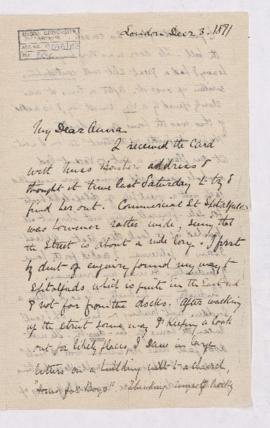 London, Decr 3. 1891
My Dear Anna
I received the Card
with Miss address &
thought it time last Saturday to try &
find her out. Commercial St Spitalfields
was however rather wide, seeing that
the Street is about a mile long. I first
by dint of enquiry found my way to
Spitalfields which is quite in the East end
& not far from the docks. After walking
up the street some way & keeping a look
out for likely places, I saw in large
letters on a building next to a church,
"Home for Boys"